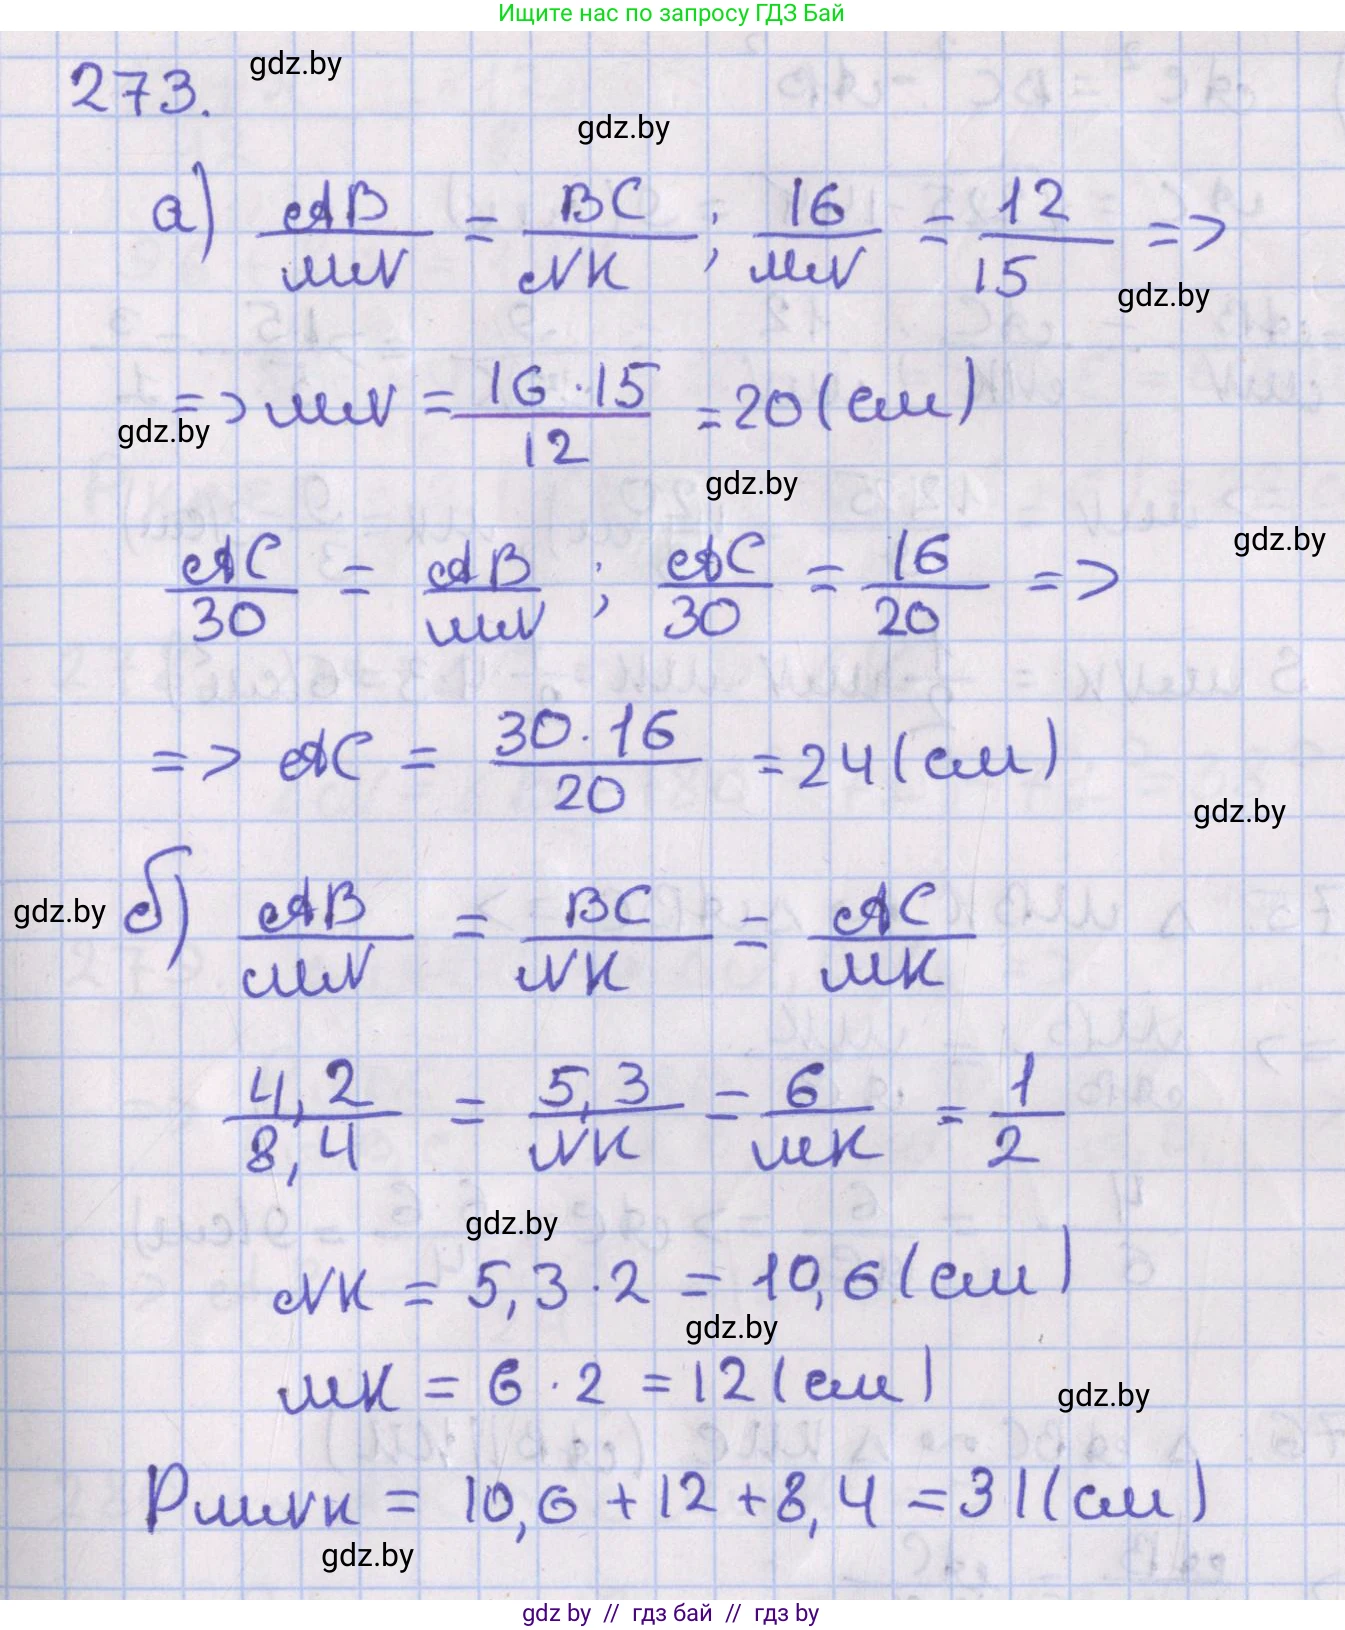 Ищите нас по запросу ГДЗ Бай
273.
gdz.by
gdz.by
а) AB/MN = BC/NK ; 16/MN = 12/15 =>
gdz.by
=> MN = 16·15/12 = 20 (см)
gdz.by
gdz.by
gdz.by
AC/30 = AB/MN ; AC/30 = 16/20 =>
=> AC = 30·16/20 = 24 (см)
gdz.by
gdz.by
б) AB/MN = BC/NK = AC/MK
4,2/8,4 = 5,3/NK = 6/MK = 1/2
gdz.by
NK = 5,3 · 2 = 10,6 (см)
gdz.by
MK = 6 · 2 = 12 (см)
gdz.by
PMNK = 10,6 + 12 + 8,4 = 31 (см)
gdz.by
gdz by // гдз бай // гдз by